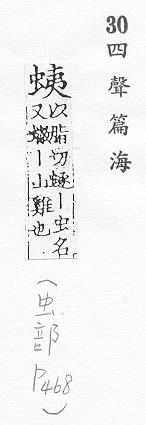 30四聲篇海
蛦以脂切蝂丨虫名
又蛦丨山雞也
(虫部
P468)